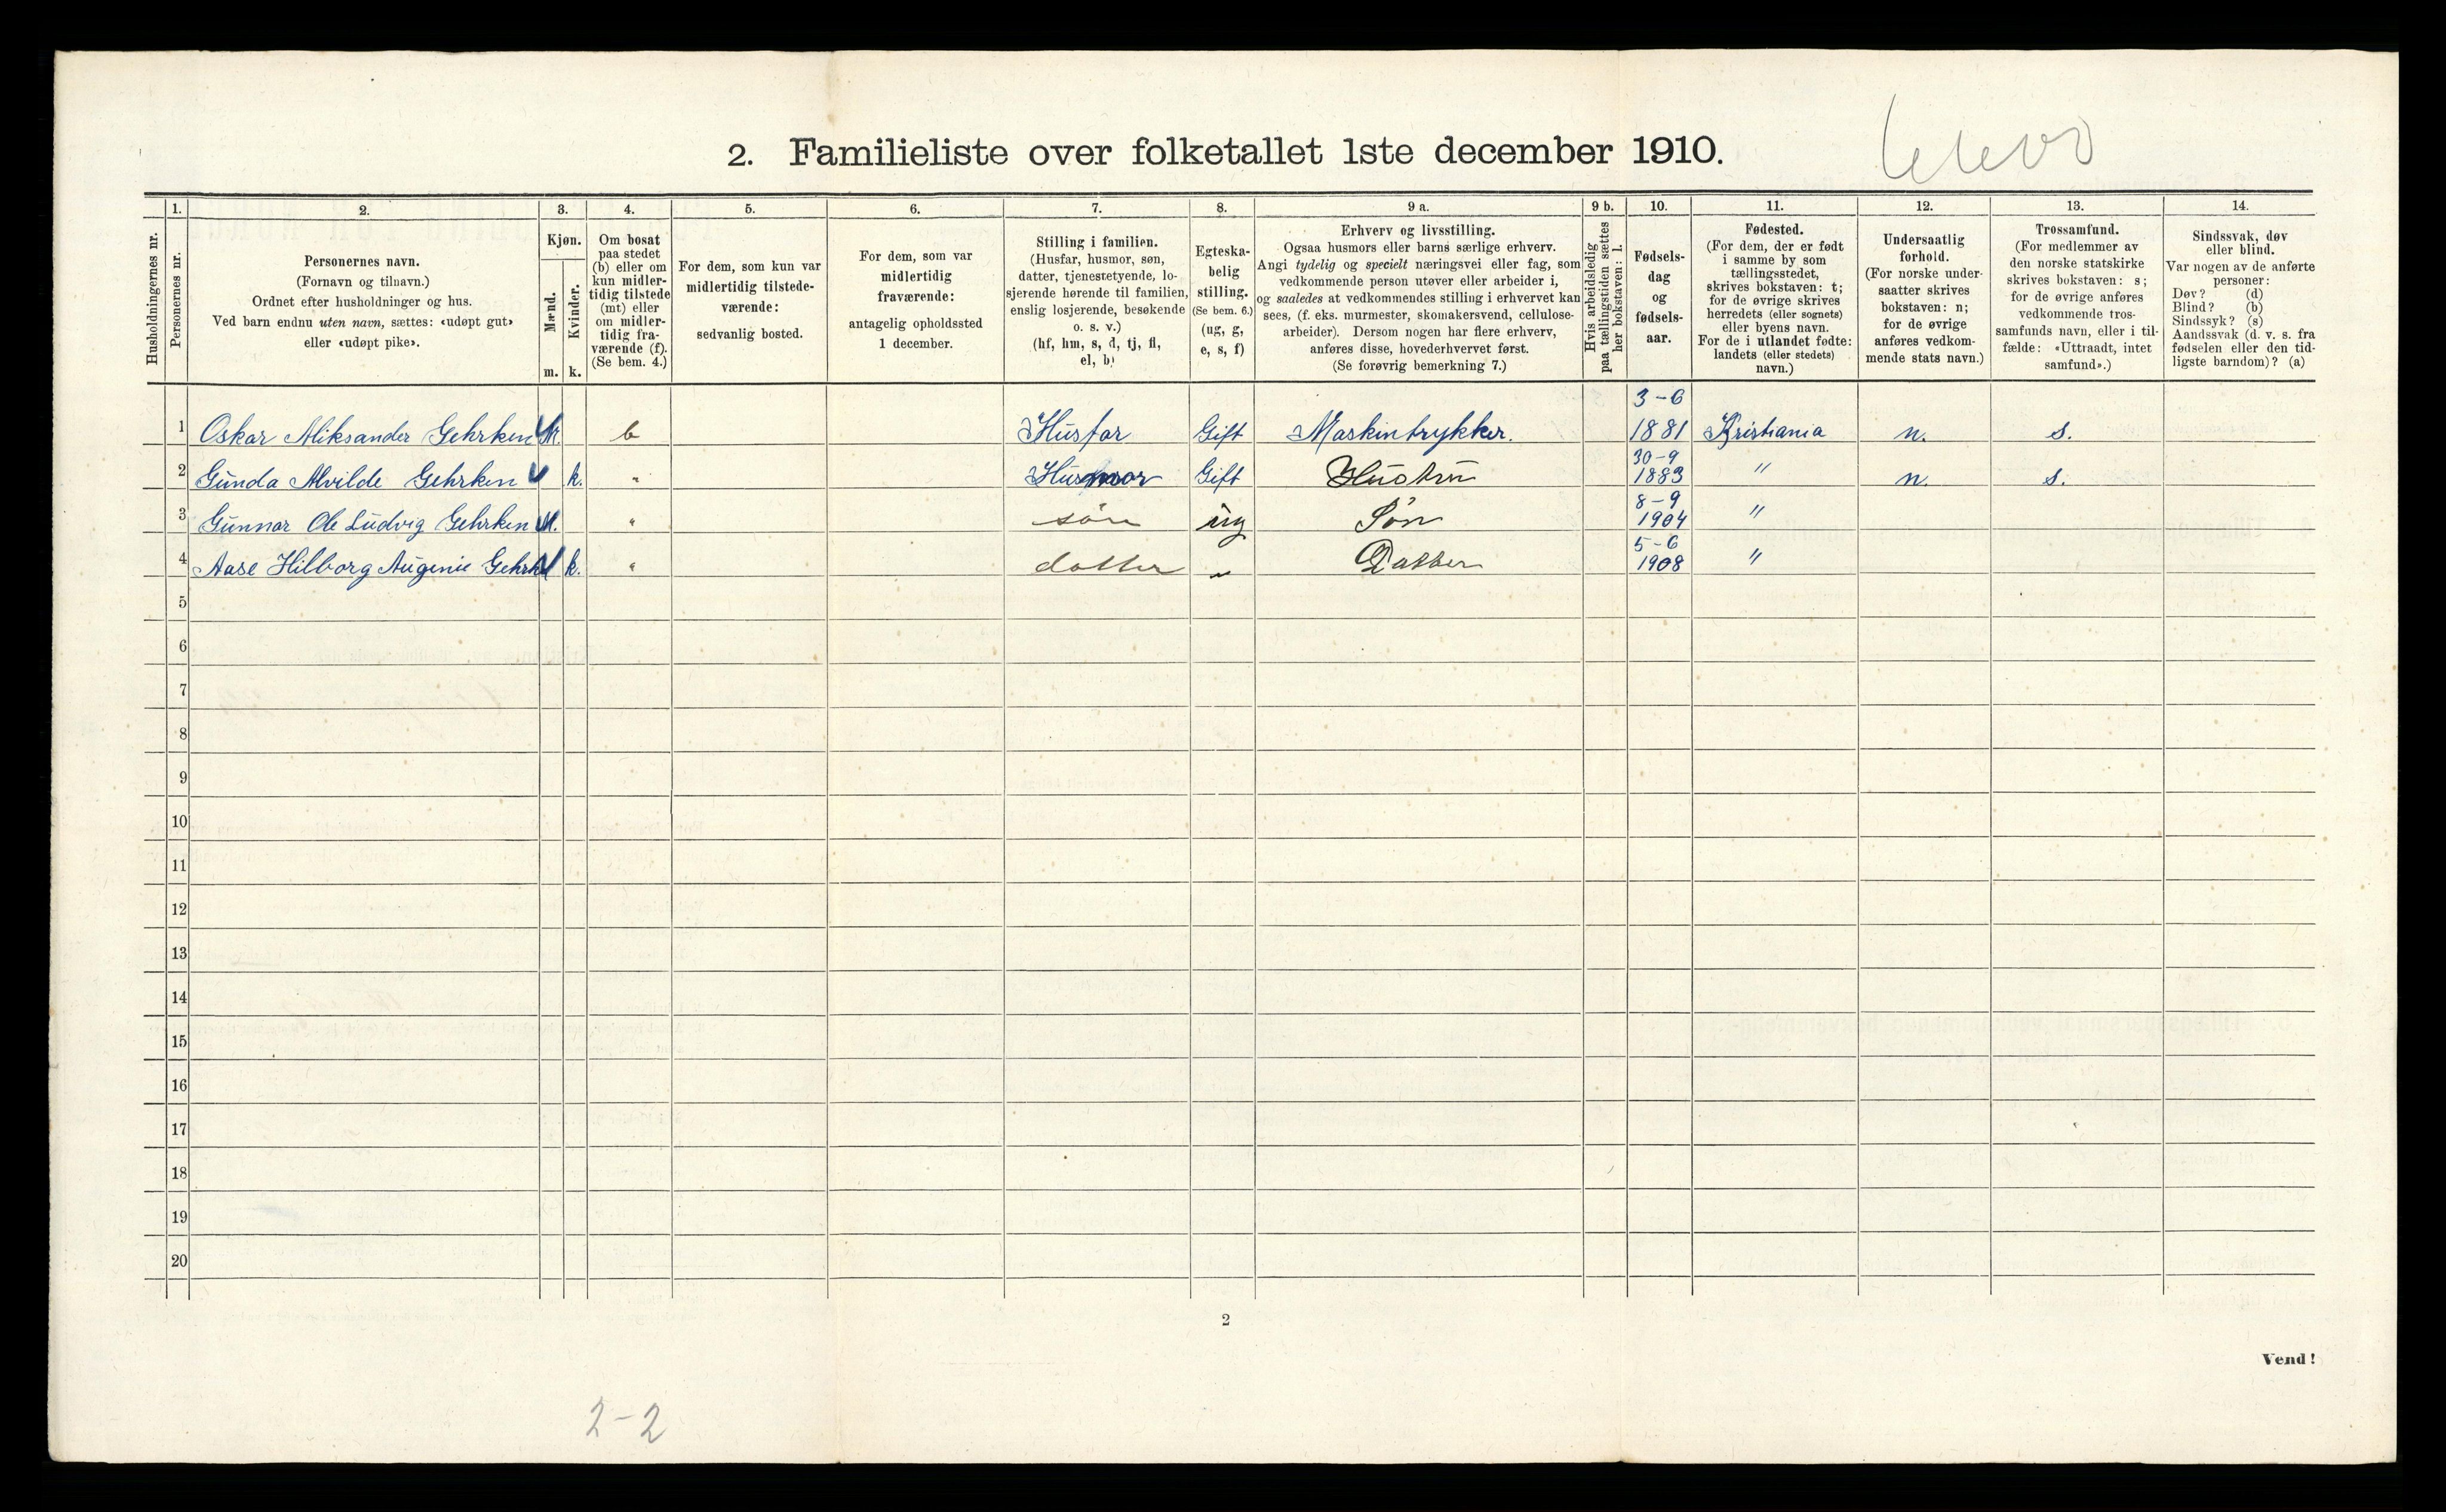 2. Familieliste over folketallet 1ste december 1910.
1. 2. 3. 4. 5. 6. 7. 8. 9 a. 9 b. 10. 11. 12. 13. 14.
Husholdningernes nr.
Personernes nr.
Personernes navn.
(Fornavn og tilnavn.)
Ordnet efter husholdninger og hus.
Ved barn endnu uten navn, sættes: «udøpt gut»
eller «udøpt pike».
Kjøn.
Mænd.
Kvinder.
m. k.
Om bosat
paa stedet
(b) eller om
kun midler-
tidig tilstede
(mt) eller
om midler-
tidig fra-
værende (f).
(Se bem. 4.)
For dem, som kun var
midlertidig tilstede-
værende:
sedvanlig bosted.
For dem, som var
midlertidig
fraværende:
antagelig opholdssted
1 december.
Stilling i familien.
(Husfar, husmor, søn,
datter, tjenestetyende, lo-
sjerende hørende til familien,
enslig losjerende, besøkende
o. s. v.)
(hf, hm, s, d, tj, fl,
el, b)
Egteska-
belig
stilling.
(Se bem. 6.)
(ug, g,
e, s, f)
Erhverv og livsstilling.
Ogsaa husmors eller barns særlige erhverv.
Angi tydelig og specielt næringsvei eller fag, som
vedkommende person utøver eller arbeider i,
og saaledes at vedkommendes stilling i erhvervet kan
sees, (f. eks. murmester, skomakersvend, cellulose-
arbeider). Dersom nogen har flere erhverv,
anføres disse, hovederhvervet først.
(Se forøvrig bemerkning 7.)
Hvis arbeidsledig
paa tællingstiden sættes
her bokstaven: l.
Fødsels-
dag
og
fødsels-
aar.
Fødested.
(For dem, der er født
i samme by som
tællingsstedet,
skrives bokstaven: t;
for de øvrige skrives
herredets (eller sognets)
eller byens navn.
For de i utlandet fødte:
landets (eller stedets)
navn.)
Undersaatlig
forhold.
(For norske under-
saatter skrives
bokstaven: n;
for de øvrige
anføres vedkom-
mende stats navn.)
Trossamfund.
(For medlemmer av
den norske statskirke
skrives bokstaven: s;
for de øvrige anføres
vedkommende tros-
samfunds navn, eller i til-
fælde: «Uttraadt, intet
samfund».)
Sindssvak, døv
eller blind.
Var nogen av de anførte
personer:
Døv? (d)
Blind? (b)
Sindssyk? (s)
Aandssvak (d. v. s. fra
fødselen eller den tid-
ligste barndom)? (a)
1 Oskar Aliksander Gehrken M. b Husfar Gift Maskintrykker. 3-6 1881 Kristiania n. s.
2 Gunda Alvilde Gehrken k. " Husmor Gift Hustru 30-9 1883 " n. s.
3 Gunnar Ole Ludvig Gehrken M. " søn ug Søn 8-9 1904 "
4 Aase Hilborg Augenie k. " datter " Datter 5-6 1908 "
5
6
7
8
9
10
11
12
13
14
15
16
17
18
19
20
2
Vend!
2-2